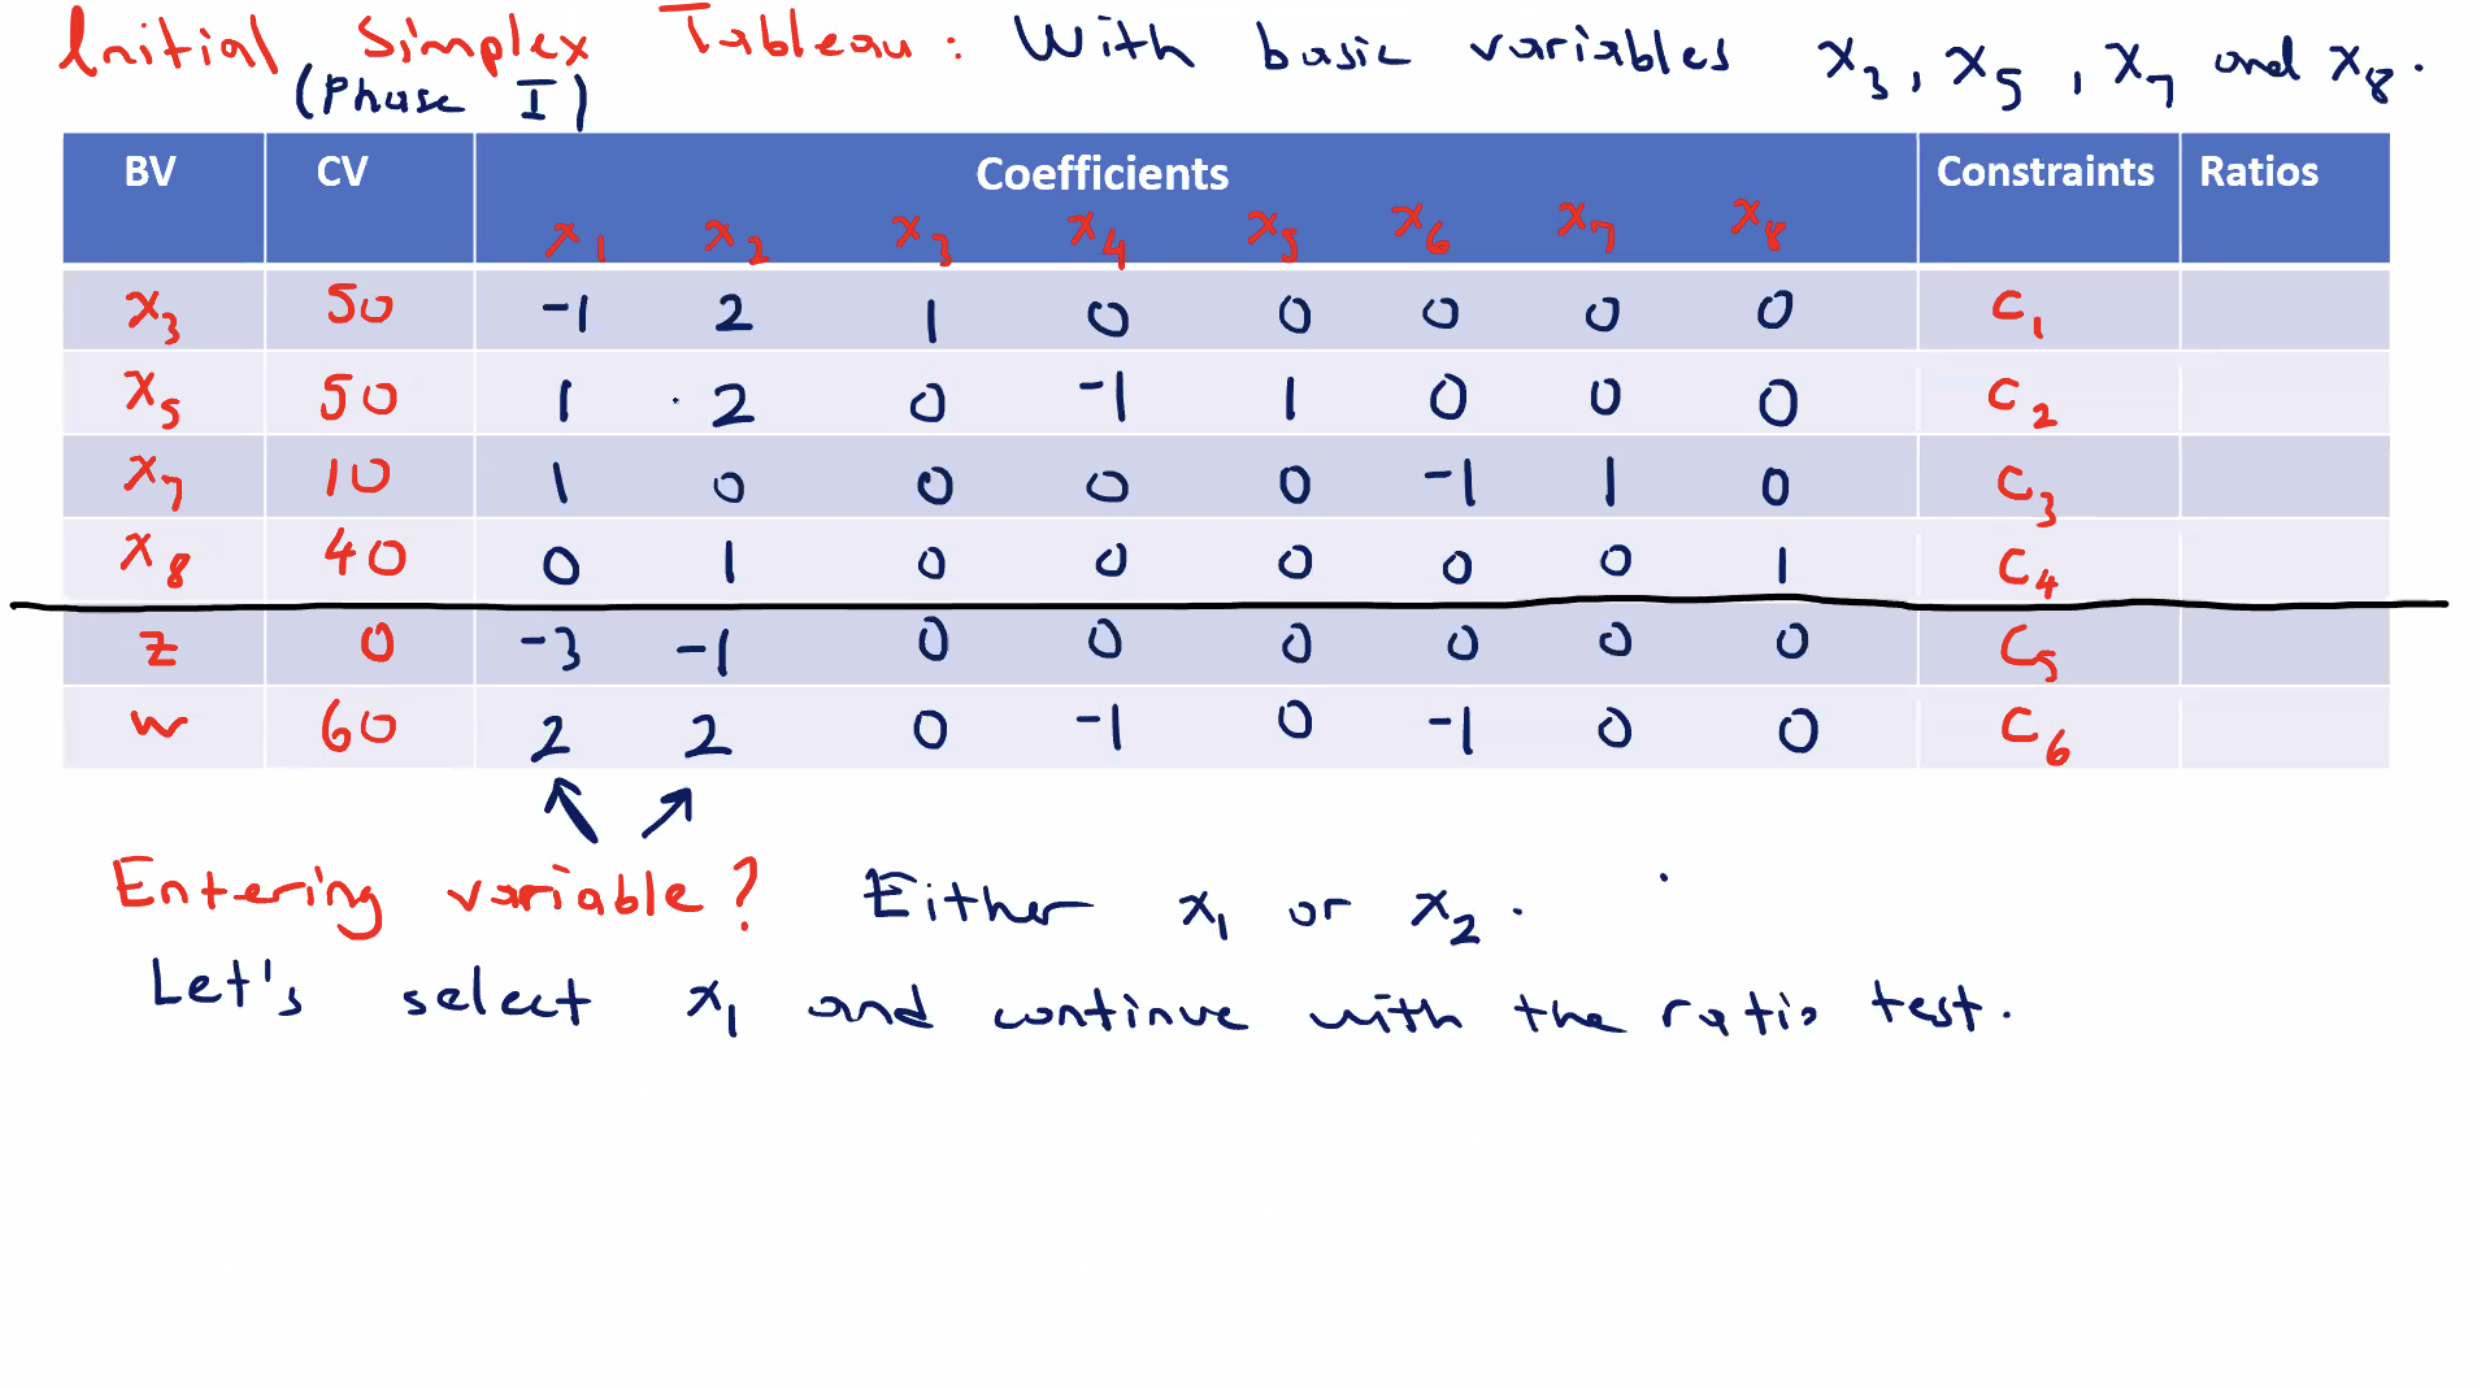 Initial Simplex Tableau: With basic variables x₃, x₅, x₇ and x₈.
(Phase I)
BV CV Coefficients Constraints Ratios
x₁ x₂ x₃ x₄ x₅ x₆ x₇ x₈
x₃ 50 -1 2 1 0 0 0 0 0 C₁
x₅ 50 1 2 0 -1 1 0 0 0 C₂
x₇ 10 1 0 0 0 0 -1 1 0 C₃
x₈ 40 0 1 0 0 0 0 0 1 C₄
z 0 -3 -1 0 0 0 0 0 0 C₅
w 60 2 2 0 -1 0 -1 0 0 C₆
Entering variable? Either x₁ or x₂.
Let's select x₁ and continue with the ratio test.